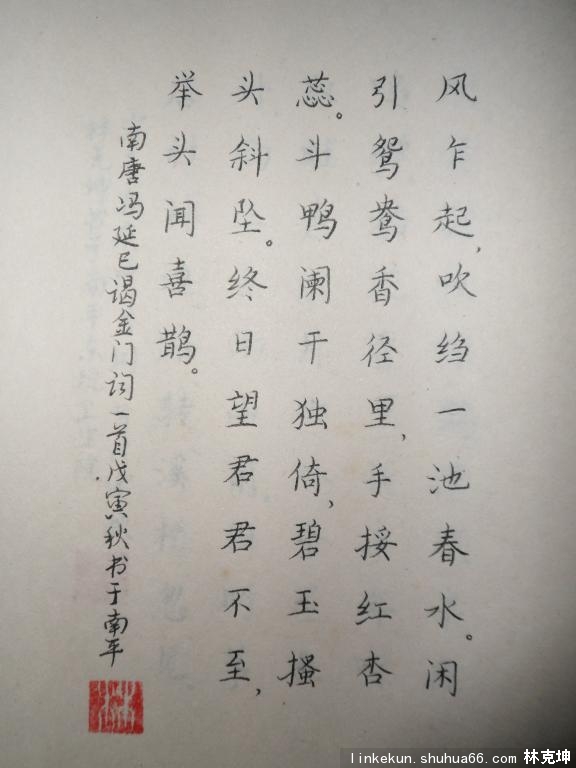 风乍起，吹绉一池春水。闲
引鸳鸯香径里，手挼红杏
蕊。斗鸭阑干独倚，碧玉搔
头斜坠。终日望君君不至，
举头闻喜鹊。
南唐冯延巳谒金门词一首戊寅秋书于南平
linkekun.shuhua66.com 林克坤